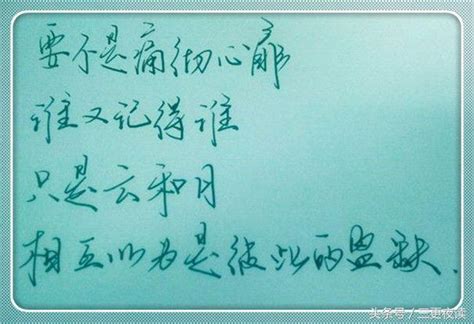 要不是痛彻心扉
谁又记得谁
只是云和月
相互以为是彼此的盈缺.
头条号／三更夜读